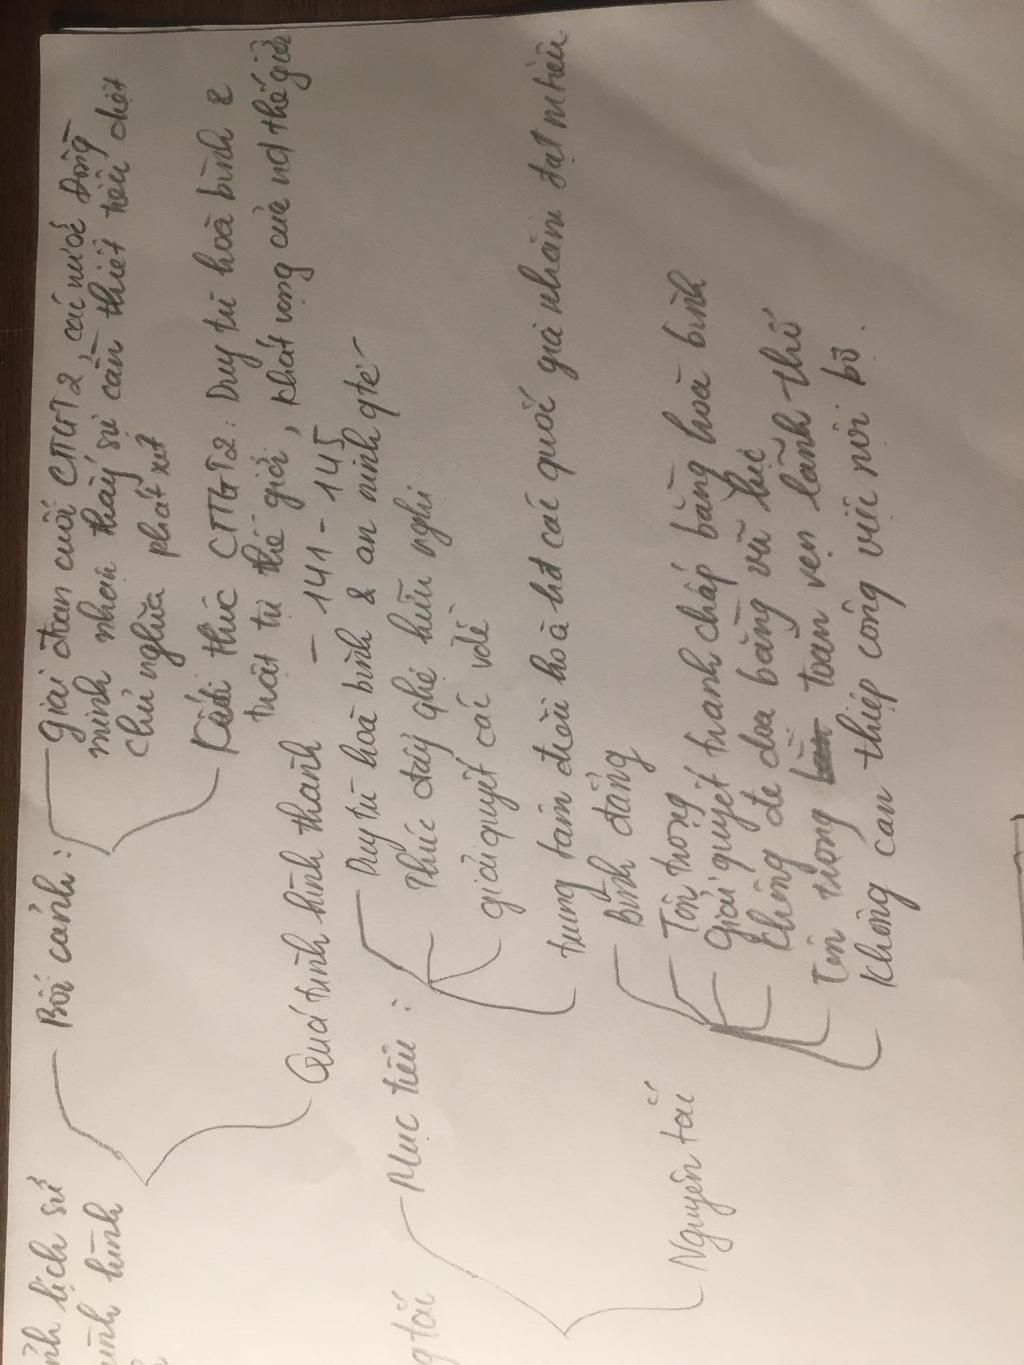 ảnh lịch sử
trình hình
Bối cảnh:
Giai đoạn cuối CTTGT2, các nước Đồng
minh nhận thấy sự cần thiết tiêu diệt
chủ nghĩa phát xít
Kết thúc CTTGT2: Duy trì hoà bình &
trật tự thế giới, khát vọng của nd thế giới
Quá trình hình thành - 141 - 145
g tắc
Mục tiêu:
Duy trì hoà bình & an ninh qtế
Thúc đẩy qhệ hữu nghị
giải quyết các vđề
trung tâm điều hoà hđ các quốc gia nhằm đạt mtiêu
Nguyên tắc
Bình đẳng
Tôn trọng
Giải quyết tranh chấp bằng hoà bình
Không đe doạ bằng vũ lực
Tôn trọng toàn vẹn lãnh thổ
Không can thiệp công việc nội bộ.